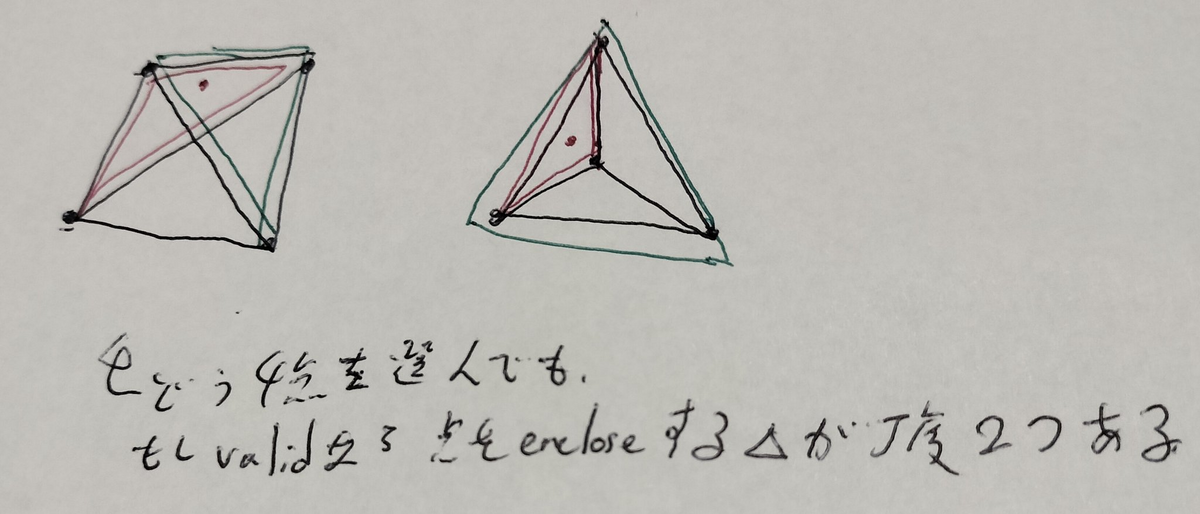 どう4点を選んでも.
もし validな3 点を encloseする △が丁度2つある